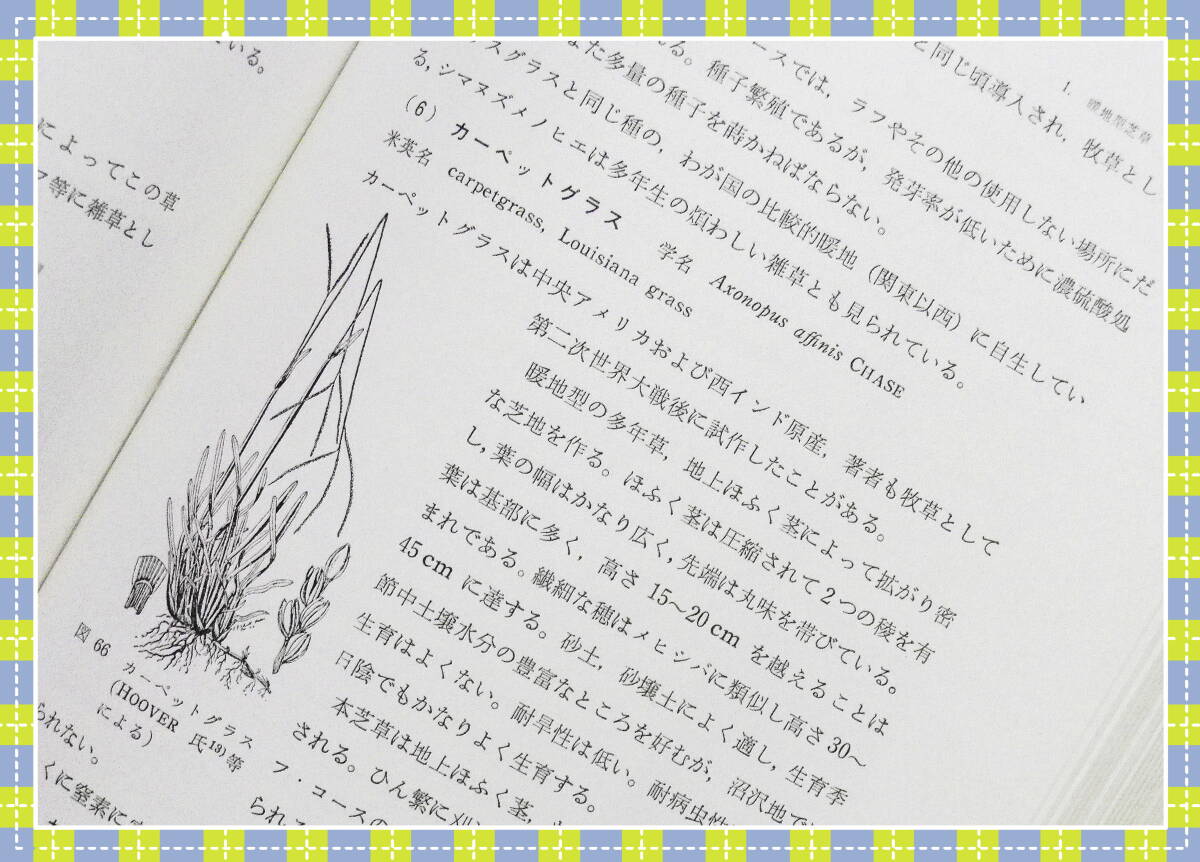 いる。
によってこの草
フ等に雑草とし
1. 暖地型芝草
と同じ頃導入され，牧草とし
ースでは，ラフやその他の使用しない場所にだ
る。種子繁殖であるが，発芽率が低いために濃硫酸処
また多量の種子を蒔かねばならない。
スグラスと同じ種の，わが国の比較的暖地（関東以西）に自生してい
る，シマスズメノヒエは多年生の煩わしい雑草とも見られている。
(6) カーペットグラス 学名 Axonopus affinis CHASE
米英名 carpetgrass, Louisiana grass
カーペットグラスは中央アメリカおよび西インド原産，著者も牧草として
第二次世界大戦後に試作したことがある。
暖地型の多年草，地上ほふく茎によって拡がり密
な芝地を作る。ほふく茎は圧縮されて2つの稜を有
し，葉の幅はかなり広く，先端は丸味を帯びている。
葉は基部に多く，高さ 15～20 cm を越えることは
まれである。繊細な穂はメヒシバに類似し高さ30～
45 cm に達する。砂土，砂壌土によく適し，生育季
節中土壌水分の豊富なところを好むが，沼沢地で
生育はよくない。耐旱性は低い。耐病虫性
日陰でもかなりよく生育する。
本芝草は地上ほふく茎，
される。ひん繁に刈
フ・コースの
られ
図 66 カーペットグラス
(HOOVER 氏13)等
による)
られない。
くに窒素に